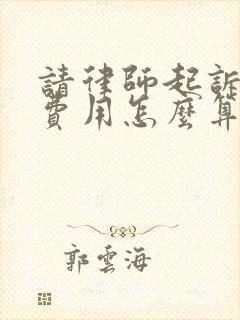 請律師起訴
費用怎麼算
郭雲海